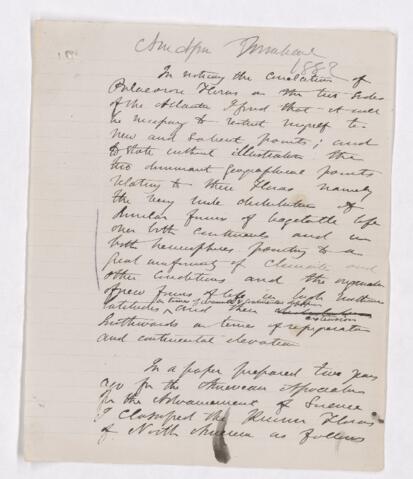 1883
In noticing the correlation of
Palaeozoic Floras on the two sides
of the Atlantic I find that it will
be necessary to restrict myself to
new and salient points; and
to state without illustration the
two dominant geographical points
relating to these floras namely
the very wide distribution of
similar forms of vegetable life
over both continents and in
both hemispheres pointing to a
great uniformity of climate and
other conditions and the
of new forms of life in high northern
latitudes in times of and their extension
Southwards in times of refrigeration
and continental elevation
In a paper prepared two years
ago for the American Association
for the Advancement of Science
I classified the Floras
of North America as follows